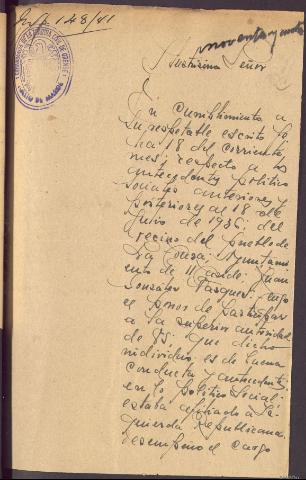 Exp 148/41
noventa y nueve
Ilustrísimo Señor
En cumplimiento a
su respetable escrito fe
cha 18 del corriente
mes; respecto a los
antecedentes político
sociales anteriores y
posteriores al 18 de
Julio de 1936; del
vecino del pueblo de
Ayuntami
ento de Juan
González Vazquez; tengo
el honor de participar
a la superior autoridad
de VS; que dicho
individuo es de buena
conducta y antecedentes,
en lo político social;
estaba afiliado a Iz
quierda Republicana
desempeño el cargo